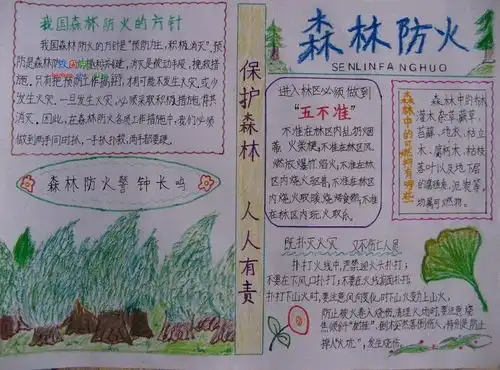 我国森林防火的方针
我国森林防火的方针是"预防为主,积极消灭"。预
防是森林防火的
消灭是被动手段、挽救措
施。只有把预防工作搞好了,才有可能不发生火灾或少
发生火灾。一旦发生火灾,必须采取积极措施将其
消灭。因此,在森林防火各项工作措施中,我们必须
做到两手同时抓,一手抓扑救,两手都要硬。
森林防火警钟长鸣
保护森林 人人有责
森林防火
SENLINFANGHUO
进入林区必须做到
"五不准"
不准在林区内乱扔烟
蒂、火柴梗,不准在林区
燃放爆竹、焰火,不准在林
区内烧火驱兽,不准在林区
内烧火取暖、烧烤食物,不准
在林区内玩火取乐。
森林中的可燃物有哪些
森林中的树
灌木、杂草、蕨草、
苔藓、地衣、枯立
木、腐朽木、枯枝
落叶以及地下层
的腐殖质、泥炭等,
均属可燃物。
既扑灭火灾 又不伤亡人员
扑打火线中,严禁迎火头扑打;
不要在下风口扑打;不要在火线前面扑打
扑打下山火时,要注意风向变化时下山火变为上山火,
防止被火卷入烧伤。清理火场时,要注意烧
焦倾斜"树挂"、倒木突然落倒伤人,特别是防止
掉入"火坑",发生烧伤。